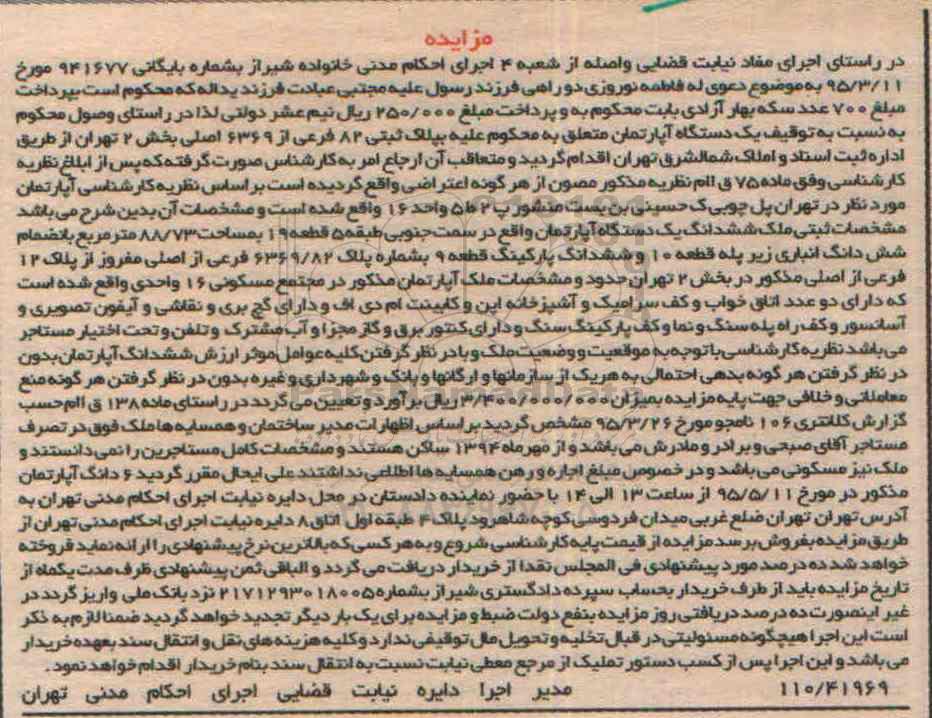 مزایده
در راستای اجرای مفاد نیابت قضایی واصله از شعبه ۴ اجرای احکام مدنی خانواده شیراز بشماره بایگانی ۹۴۱۶۷۷ مورخ
۹۵/۳/۱۱ به موضوع دعوی له فاطمه نوروزی دوراهی فرزند رسول علیه مجتبی عبادت فرزند یداله که محکوم است بپرداخت
مبلغ ۷۰۰ عدد سکه بهار آزادی بابت محکوم به و پرداخت مبلغ ۲۵۰/۰۰۰ ریال نیم عشر دولتی لذا در راستای وصول محکوم
به نسبت به توقیف یک دستگاه آپارتمان متعلق به محکوم علیه بپلاک ثبتی ۸۲ فرعی از ۶۳۶۹ اصلی بخش ۲ تهران از طریق
اداره ثبت اسناد و املاک شمالشرق تهران اقدام گردید و متعاقب آن ارجاع امر به کارشناس صورت گرفته که پس از ابلاغ نظریه
کارشناسی وفق ماده ۷۵ ق اام نظریه مذکور مصون از هر گونه اعتراضی واقع گردیده است بر اساس نظریه کارشناسی آپارتمان
مورد نظر در تهران پل چوبی ک حسینی بن بست منشور پ ۲ ط۵ واحد ۱۶ واقع شده است و مشخصات آن بدین شرح می باشد
مشخصات ثبتی ملک ششدانگ یک دستگاه آپارتمان واقع در سمت جنوبی طبقه ۵ قطعه ۱۹ بمساحت ۸۸/۷۳ متر مربع بانضمام
شش دانگ انباری زیر پله قطعه ۱۰ و ششدانگ پارکینگ قطعه ۹ بشماره پلاک ۶۳۶۹/۸۲ فرعی از اصلی مفروز از پلاک ۱۲
فرعی از اصلی مذکور در بخش ۲ تهران حدود و مشخصات ملک آپارتمان مذکور در مجتمع مسکونی ۱۶ واحدی واقع شده است
که دارای دو عدد اتاق خواب و کف سرامیک و آشپزخانه اپن و کابینت ام دی اف و دارای گچ بری و نقاشی و آیفون تصویری و
آسانسور و کف راه پله سنگ و نما و کف پارکینگ سنگ و دارای کنتور برق و گاز مجزا و آب مشترک و تلفن و تحت اختیار مستاجر
می باشد نظریه کارشناسی با توجه به موقعیت و وضعیت ملک و با در نظر گرفتن کلیه عوامل موثر ارزش ششدانگ آپارتمان بدون
در نظر گرفتن هر گونه بدهی احتمالی به هریک از سازمانها و ارگانها و بانک و شهرداری و غیره بدون در نظر گرفتن هر گونه منع
معاملاتی و خلافی جهت پایه مزایده بمیزان ۳/۴۰۰/۰۰۰/۰۰۰ ریال برآورد و تعیین می گردد در راستای ماده ۱۳۸ ق اام حسب
گزارش کلانتری ۱۰۶ نامجو مورخ ۹۵/۳/۲۶ مشخص گردید بر اساس اظهارات مدیر ساختمان و همسایه ها ملک فوق در تصرف
مستاجر آقای صبحی و برادر و مادرش می باشد و از مهر ماه ۱۳۹۴ ساکن هستند و مشخصات کامل مستاجرین را نمی دانستند و
ملک نیز مسکونی می باشد و در خصوص مبلغ اجاره و رهن همسایه ها اطلاعی نداشتند علی ایحال مقرر گردید ۶ دانگ آپارتمان
مذکور در مورخ ۹۵/۵/۱۱ از ساعت ۱۳ الی ۱۴ با حضور نماینده دادستان در محل دایره نیابت اجرای احکام مدنی تهران به
آدرس تهران تهران ضلع غربی میدان فردوسی کوچه شاهرود پلاک ۴ طبقه اول اتاق ۸ دایره نیابت اجرای احکام مدنی تهران از
طریق مزایده بفروش برسد مزایده از قیمت پایه کارشناسی شروع و به هر کسی که بالاترین نرخ پیشنهادی را ارائه نماید فروخته
خواهد شد ده درصد مورد پیشنهادی فی المجلس نقدا از خریدار دریافت می گردد و الباقی ثمن پیشنهادی ظرف مدت یکماه از
تاریخ مزایده باید از طرف خریدار بحساب سپرده دادگستری شیراز بشماره ۲۱۷۱۲۹۳۰۱۸۰۰۵ نزد بانک ملی واریز گردد در
غیر اینصورت ده درصد دریافتی روز مزایده بنفع دولت ضبط و مزایده برای یک بار دیگر تجدید خواهد گردید ضمنا لازم به ذکر
است این اجرا هیچگونه مسئولیتی در قبال تخلیه و تحویل مال توقیفی ندارد و کلیه هزینه های نقل و انتقال سند بعهده خریدار
می باشد و این اجرا پس از کسب دستور تملیک از مرجع معطی نیابت نسبت به انتقال سند بنام خریدار اقدام خواهد نمود.
۱۱۰/۴۱۹۶۹ مدیر اجرا دایره نیابت قضایی اجرای احکام مدنی تهران